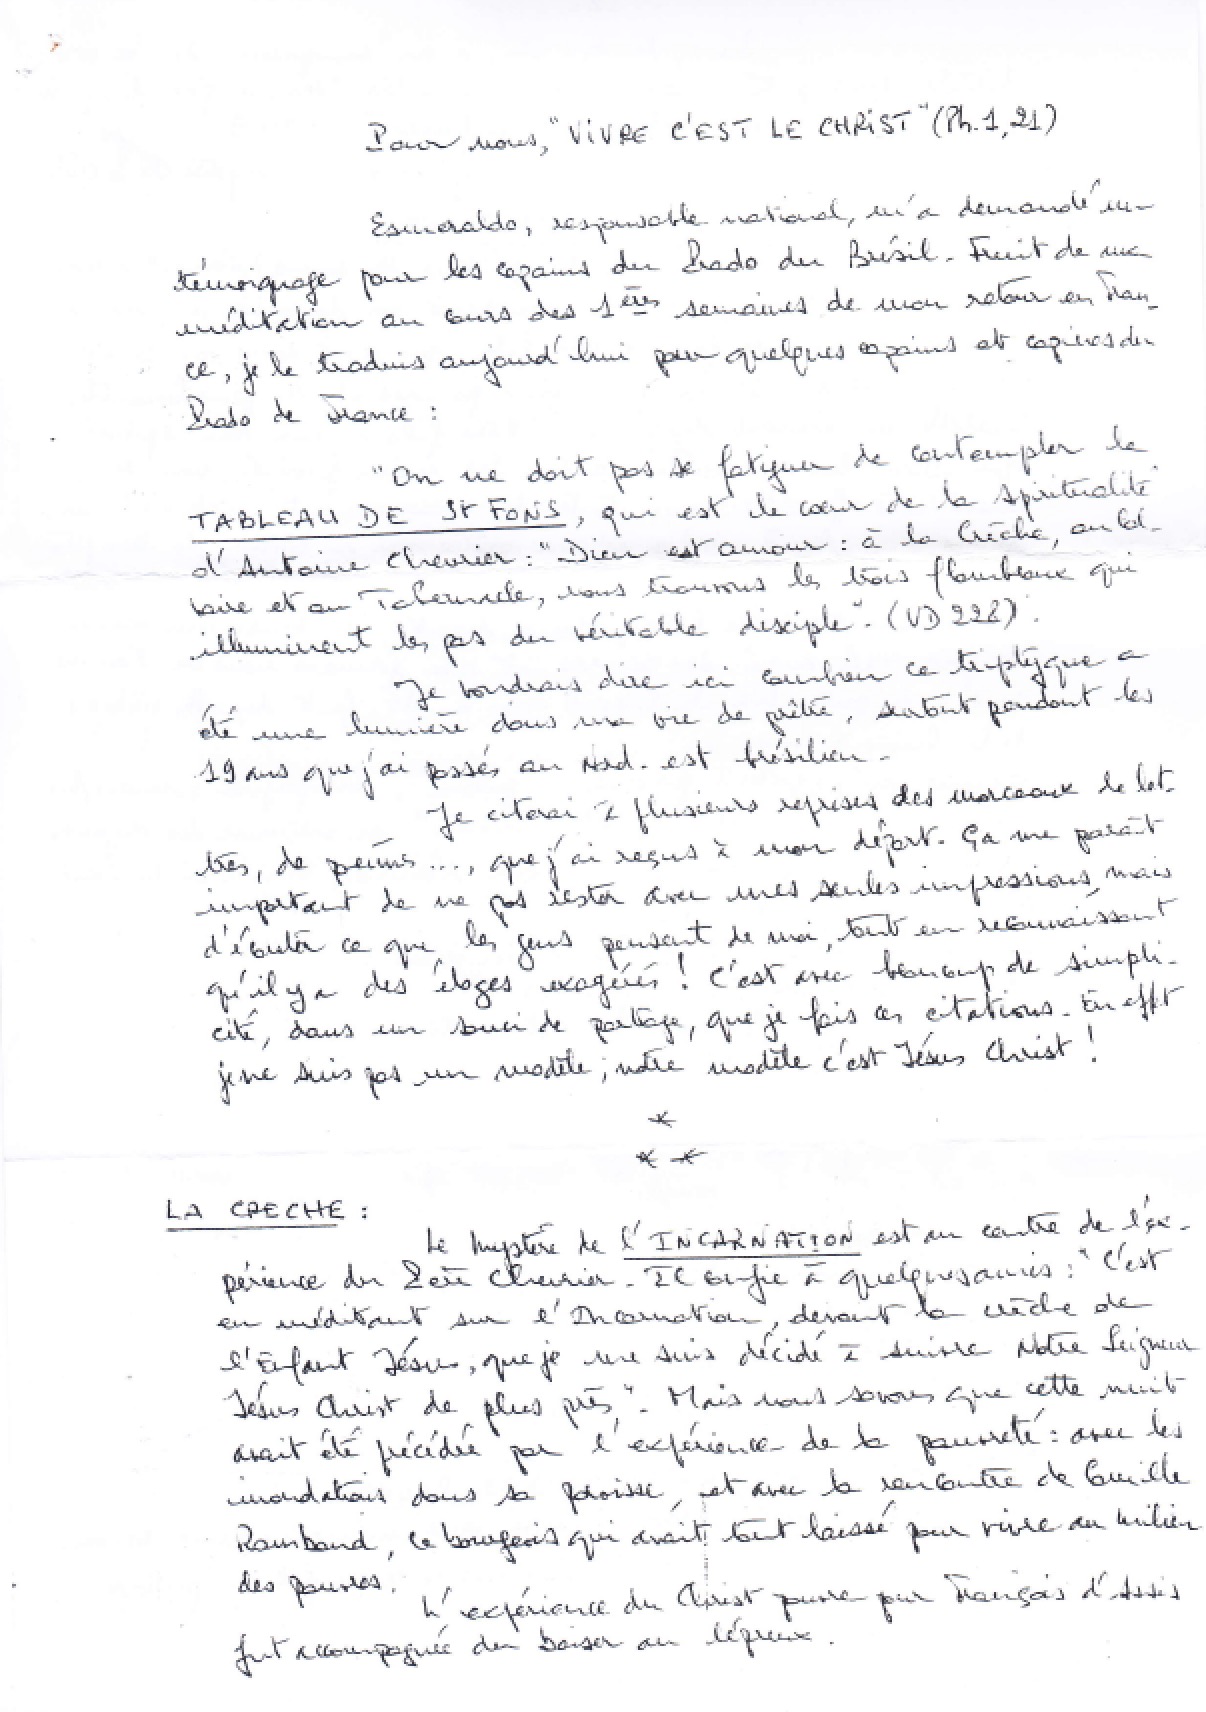 Pour nous, "VIVRE C'EST LE CHRIST" (Ph. 1, 21)
Esmeraldo, responsable national, m'a demandé un
témoignage pour les copains du Prado du Brésil. Fruit de ma
méditation au cours des 1ères semaines de mon retour en Fran-
ce, je le traduis aujourd'hui pour quelques copains et copines du
Prado de France :
"On ne doit pas se fatiguer de contempler le
TABLEAU DE St FONS, qui est le cœur de la spiritualité
d'Antoine Chevrier : "Dieu est amour : à la Crèche, au Cal-
vaire et au Tabernacle, nous trouvons les trois flambeaux qui
illuminent les pas du véritable disciple". (VD 228).
Je voudrais dire ici combien ce triptyque a
été une lumière dans ma vie de prêtre, surtout pendant les
19 ans que j'ai passés au Nord-est brésilien.
Je citerai à plusieurs reprises des morceaux de let-
tres, de poèmes ..., que j'ai reçus à mon départ. Ça me paraît
important de ne pas rester avec mes seules impressions, mais
d'écouter ce que les gens pensent de moi, tout en reconnaissant
qu'il y a des éloges exagérés ! C'est avec beaucoup de simpli-
cité, dans un souci de partage, que je fais ces citations. En effet
je ne suis pas un modèle ; notre modèle c'est Jésus Christ !
*
* *
LA CRECHE :
Le mystère de l'INCARNATION est au centre de l'ex-
périence du Père Chevrier. Il confie à quelques amis : "C'est
en méditant sur l'Incarnation, devant la crèche de
l'Enfant Jésus, que je me suis décidé à suivre Notre Seigneur
Jésus Christ de plus près". Mais nous savons que cette nuit
avait été précédée par l'expérience de la pauvreté : avec les
inondations dans sa paroisse, et avec la rencontre de Camille
Rambaud, ce bourgeois qui avait tout laissé pour vivre au milieu
des pauvres.
L'expérience du Christ pauvre par François d'Assis
fut accompagnée du baiser au lépreux.